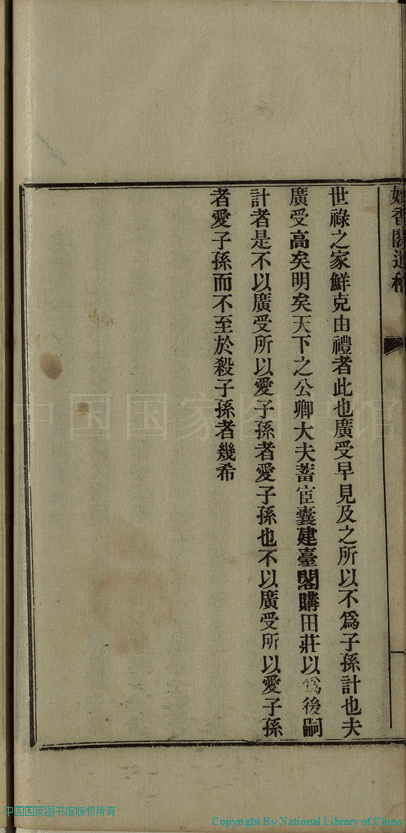 香閣遺稿
世祿之家鮮克由禮者此也廣受早見及之所以不爲子孫計也夫
廣受高矣明矣天下之公卿大夫蓄宦囊建臺閣購田莊以爲後嗣
計者是不以廣受所以愛子孫者愛子孫也不以廣受所以愛子孫
者愛子孫而不至於殺子孫者幾希
中国国家图书馆
中国国家图书馆版权所有
Copyright By National Library of China